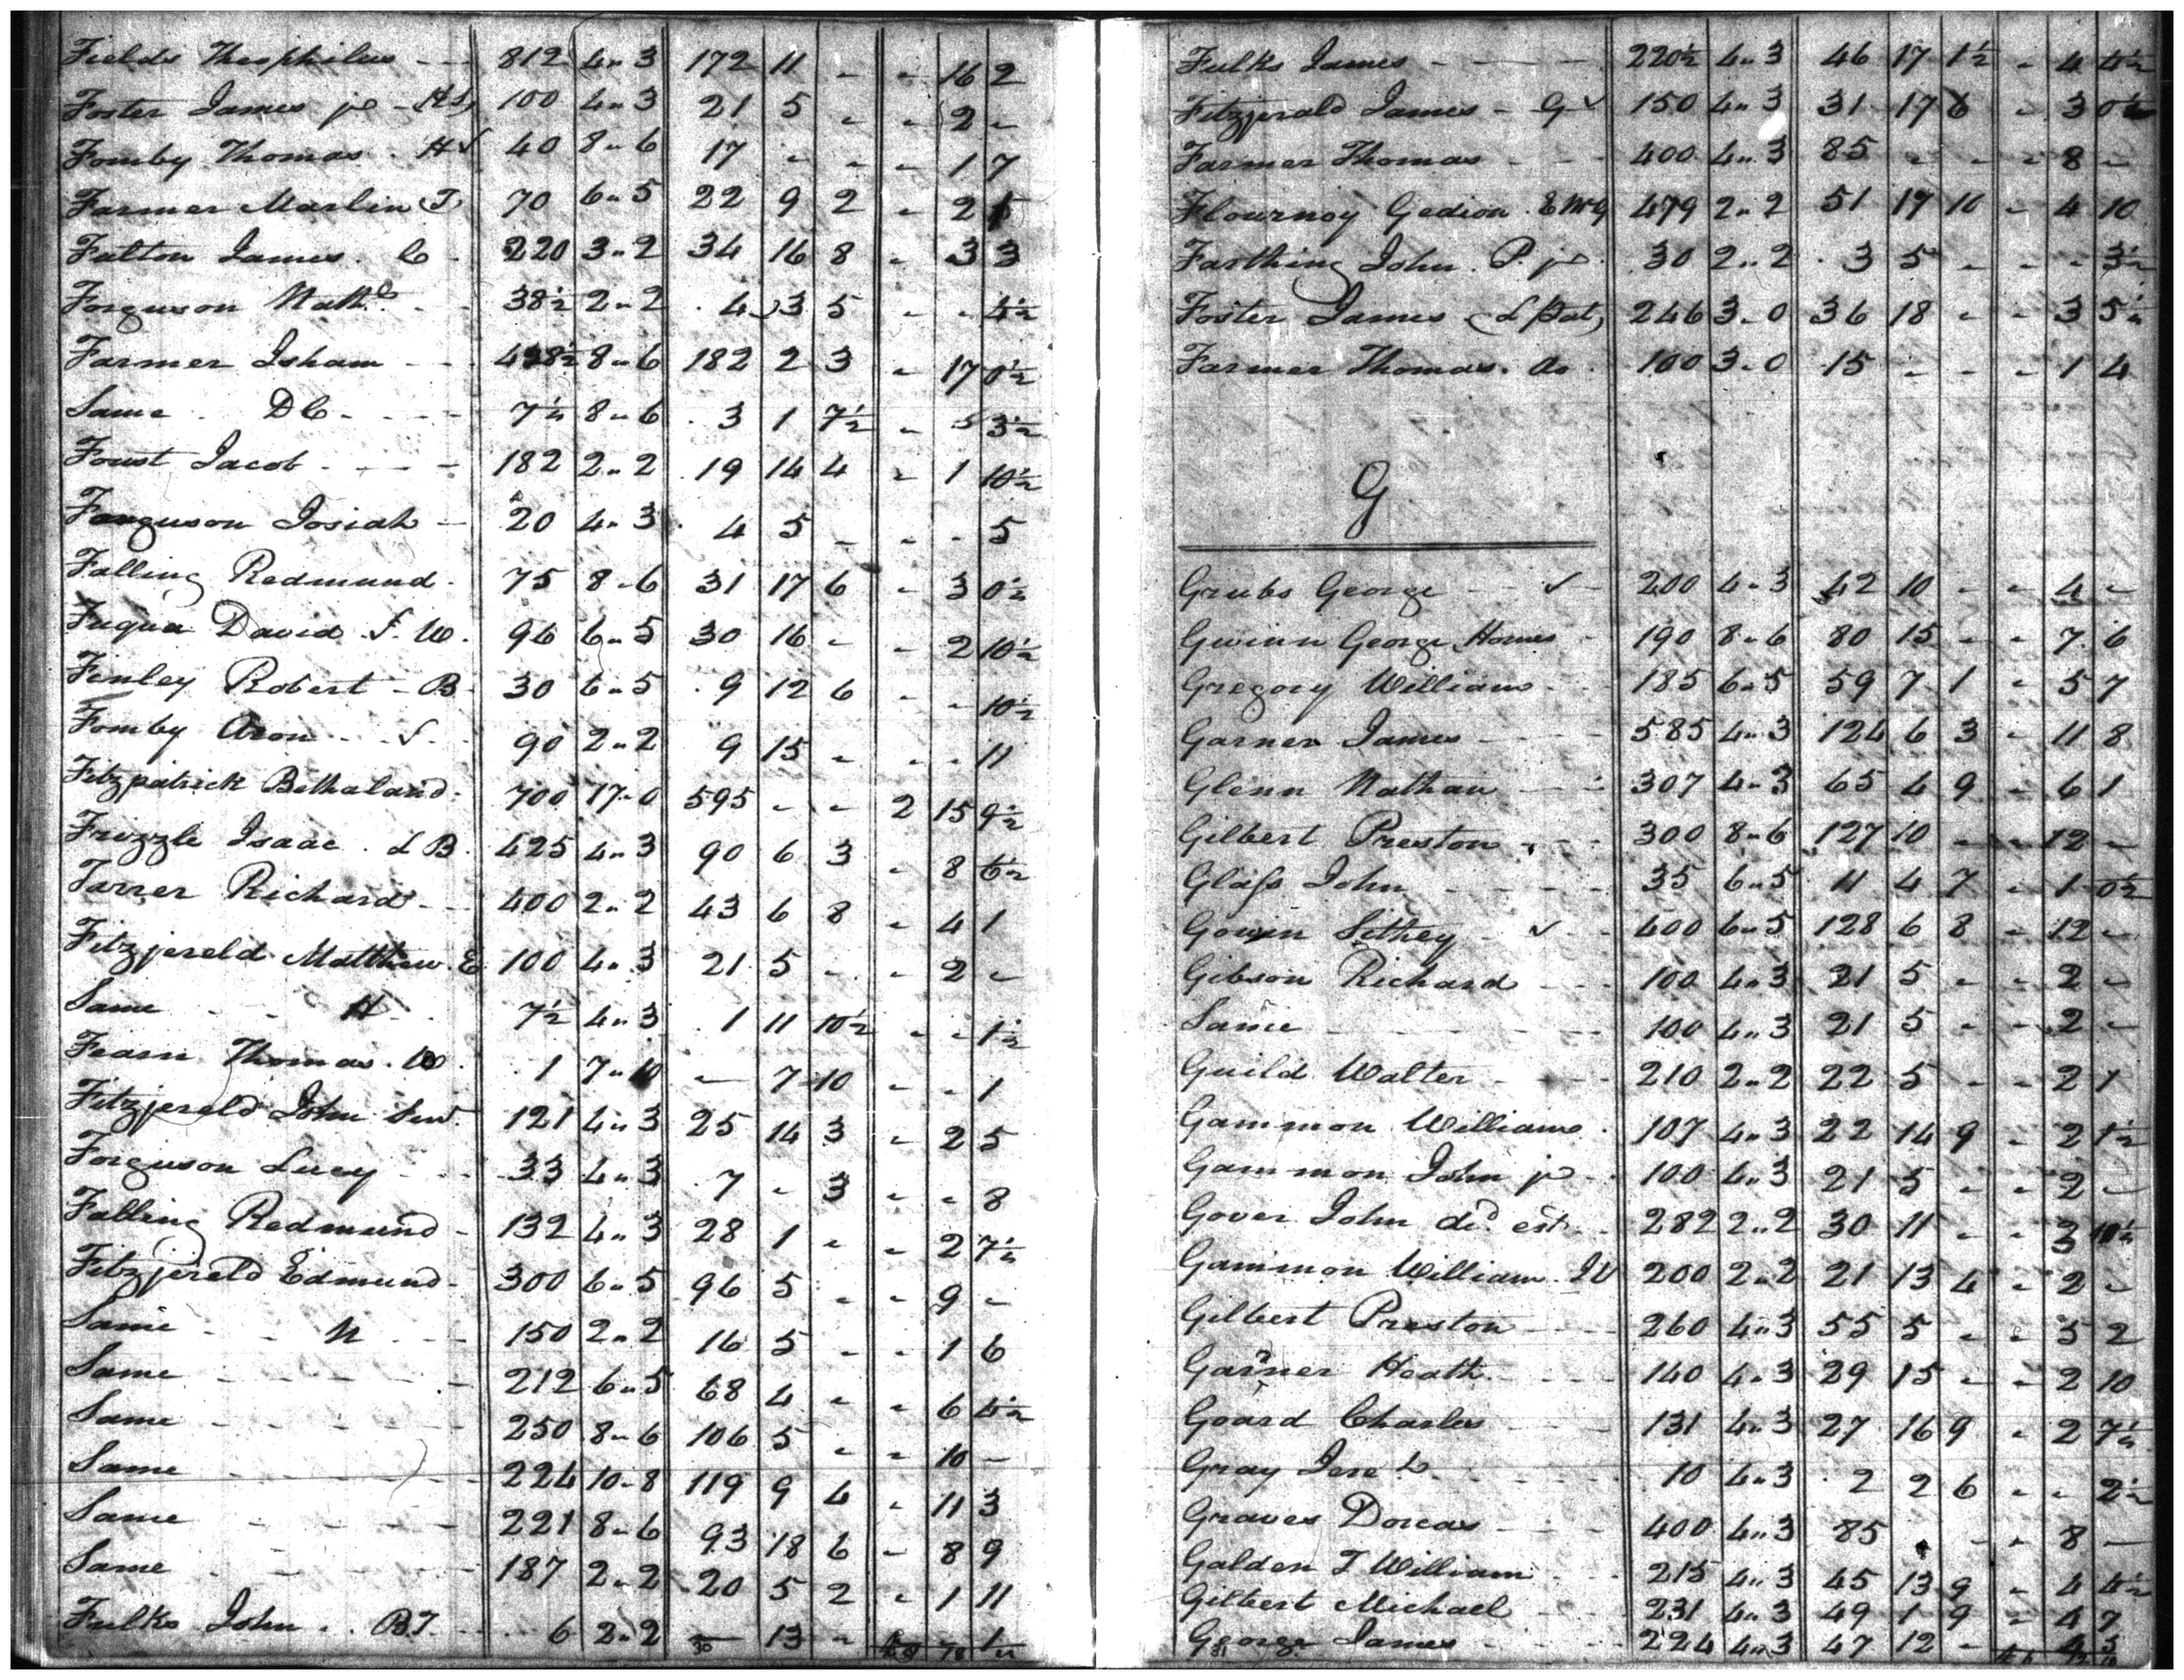 Fields Theophilus - - 812 4"3 172 11 - - 16 2
Foster James jr - 100 4"3 21 5 - - 2 -
Fomby Thomas . H 40 8"6 17 - - - 1 7
Farmer Marlin T 70 6"5 22 9 2 - 2
Fulton James . C - 220 3"2 34 16 8 - 3 3
Forguson Nath. - 38½ 2"2 4 3 5 - - 4½
Farmer Isham - - 8"6 182 2 3 - 17 0½
Same . DC - - - 7¼ 8"6 3 1 7½ - 3½
Foust Jacob - - - 182 2"2 19 14 4 - 1 10½
Forguson Josiah - 20 4"3 4 5 - - - 5
Falling Redmund - 75 8"6 31 17 6 - 3 0½
Fuqua David S. W. 96 6"5 30 16 - - 2 10½
Finley Robert - B 30 6"5 9 12 6 - - 10½
Fomby Aron - - ✓ - 90 2"2 9 15 - - - 11
Fitzpatrick Bethaland - 700 17"0 595 - - 2 15 9½
Frizzle Isaac . L B. 425 4"3 90 6 3 - 8 6½
Farrer Richard - - 400 2"2 43 6 8 - 4 1
Fitzjereld Matthew . E 100 4"3 21 5 - - 2 -
Same - - H - 7½ 4"3 1 11 10½ - - 1½
Fearn Thomas . 1 7"10 - 7 10 - - 1
Fitzjereld John Senr. 121 4"3 25 14 3 - 2 5
Forguson Lucy - - 33 4"3 7 - 3 - - 8
Falling Redmund - 132 4"3 28 1 - - 2 7½
Fitzjereld Edmund - 300 6"5 96 5 - - 9 -
Same - - N - - 150 2"2 16 5 - - 1 6
Same - - - - 212 6"5 68 4 - - 6 4½
Same - - - - 250 8"6 106 5 - - 10 -
Same - - - - 224 10"8 119 9 4 - 11 3
Same - - - - 221 8"6 93 18 6 - 8 9
Same - - - - 187 2"2 20 5 2 - 1 11
Fulks John . . B.T. - - 6 2"2 - 13 -
30
Fulks James - - - 220½ 4"3 46 17 1½ - 4 4½
Fitzjerald James - G ✓ 150 4"3 31 17 6 - 3
Farmer Thomas - - - 400 4"3 85 - - - 8 -
Flournoy Gedion . E McG 479 2"2 51 17 10 - 4 10
Farthing John . P. jr . 30 2"2 3 5 - - - 3½
Foster James (L Pat) 246 3"0 36 18 - - 3 5½
Farmer Thomas . Do . 100 3"0 15 - - - 1 4
G
Grubs George - - ✓ - 200 4"3 42 10 - - 4 -
Gwinn George Homes - 190 8"6 80 15 - - 7 6
Gregory William - - 185 6"5 59 7 1 - 5 7
Garner James - - - 585 4"3 124 6 3 - 11 8
Glenn Nathan - - - 307 4"3 65 4 9 - 6 1
Gilbert Preston - - - 300 8"6 127 10 - - 12 -
Glass John - - - - 35 6"5 11 4 7 - 1 0½
Gowin Sithey - ✓ - - 400 6"5 128 6 8 - 12 -
Gibson Richard - - - 100 4"3 21 5 - - 2 -
Same - - - - - 100 4"3 21 5 - - 2 -
Guild Walter - - - 210 2"2 22 5 - - 2 1
Gammon William . 107 4"3 22 14 9 - 2 1½
Gammon John jr - - 100 4"3 21 5 - - 2 -
Gover John decd est - - 282 2"2 30 11 - - 10½
Gammon William . 200 2"2 21 13 4 - 2 -
Gilbert Preston - - - 260 4"3 55 5 - - 5 2
Garner Heath - - - 140 4"3 29 15 - - 2 10
Goard Charles - - - 131 4"3 27 16 9 - 2 7½
Gray - - - 10 4"3 2 2 6 - - 2½
Graves Dorcas - - - 400 4"3 85 - - - 8 -
Galden T William - - 215 4"3 45 13 9 - 4 4½
Gilbert Michael - - 231 4"3 49 1 9 - 4 7
George James - - - 224 4"3 47 12 - - 4
31